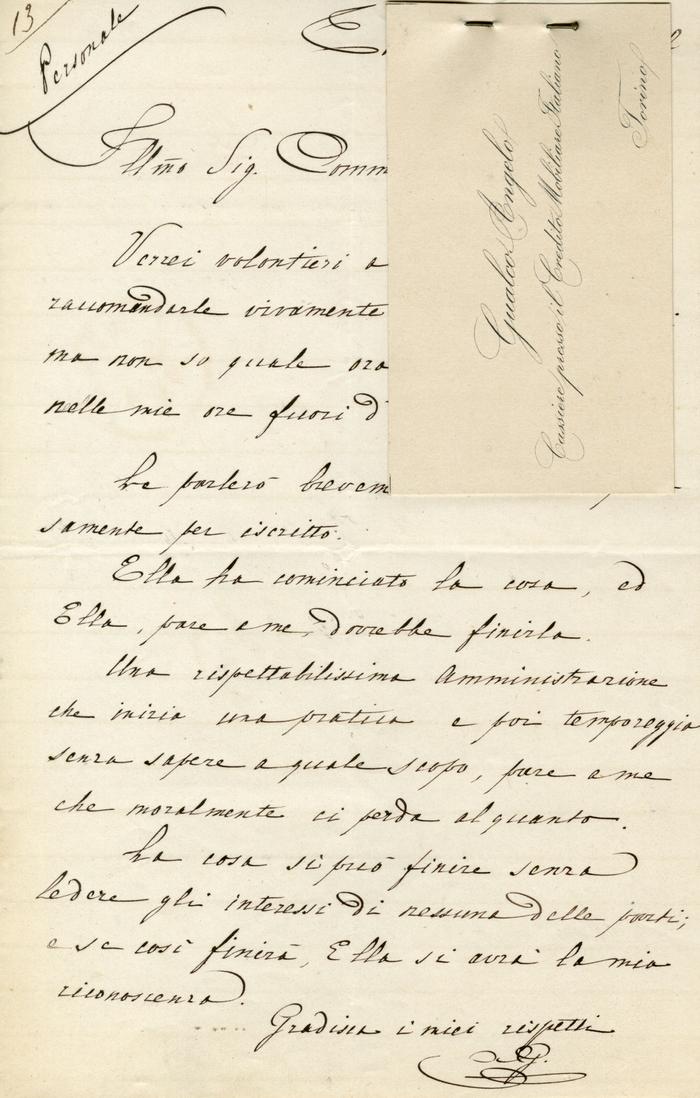 13
Personale
Illmo Sig. Comm
Verrei volontieri a
raccomandarle vivamente
ma non so quale ora
nelle mie ore fuori d
Le parlerò brevem
samente per iscritto.
Ella ha cominciato la cosa, ed
Ella, pare a me, dovrebbe finirla.
Una rispettabilissima Amministrazione
che inizia una pratica e poi temporeggia
senza sapere a quale scopo, pare a me
che moralmente ci perda alquanto.
La cosa si può finire senza
ledere gli interessi di nessuna delle parti;
e se così finirà, Ella si avrà la mia
riconoscenza.
Gradisca i miei rispetti
AG.
Gualco Angelo
Cassiere presso il Credito Mobiliare Italiano
Torino